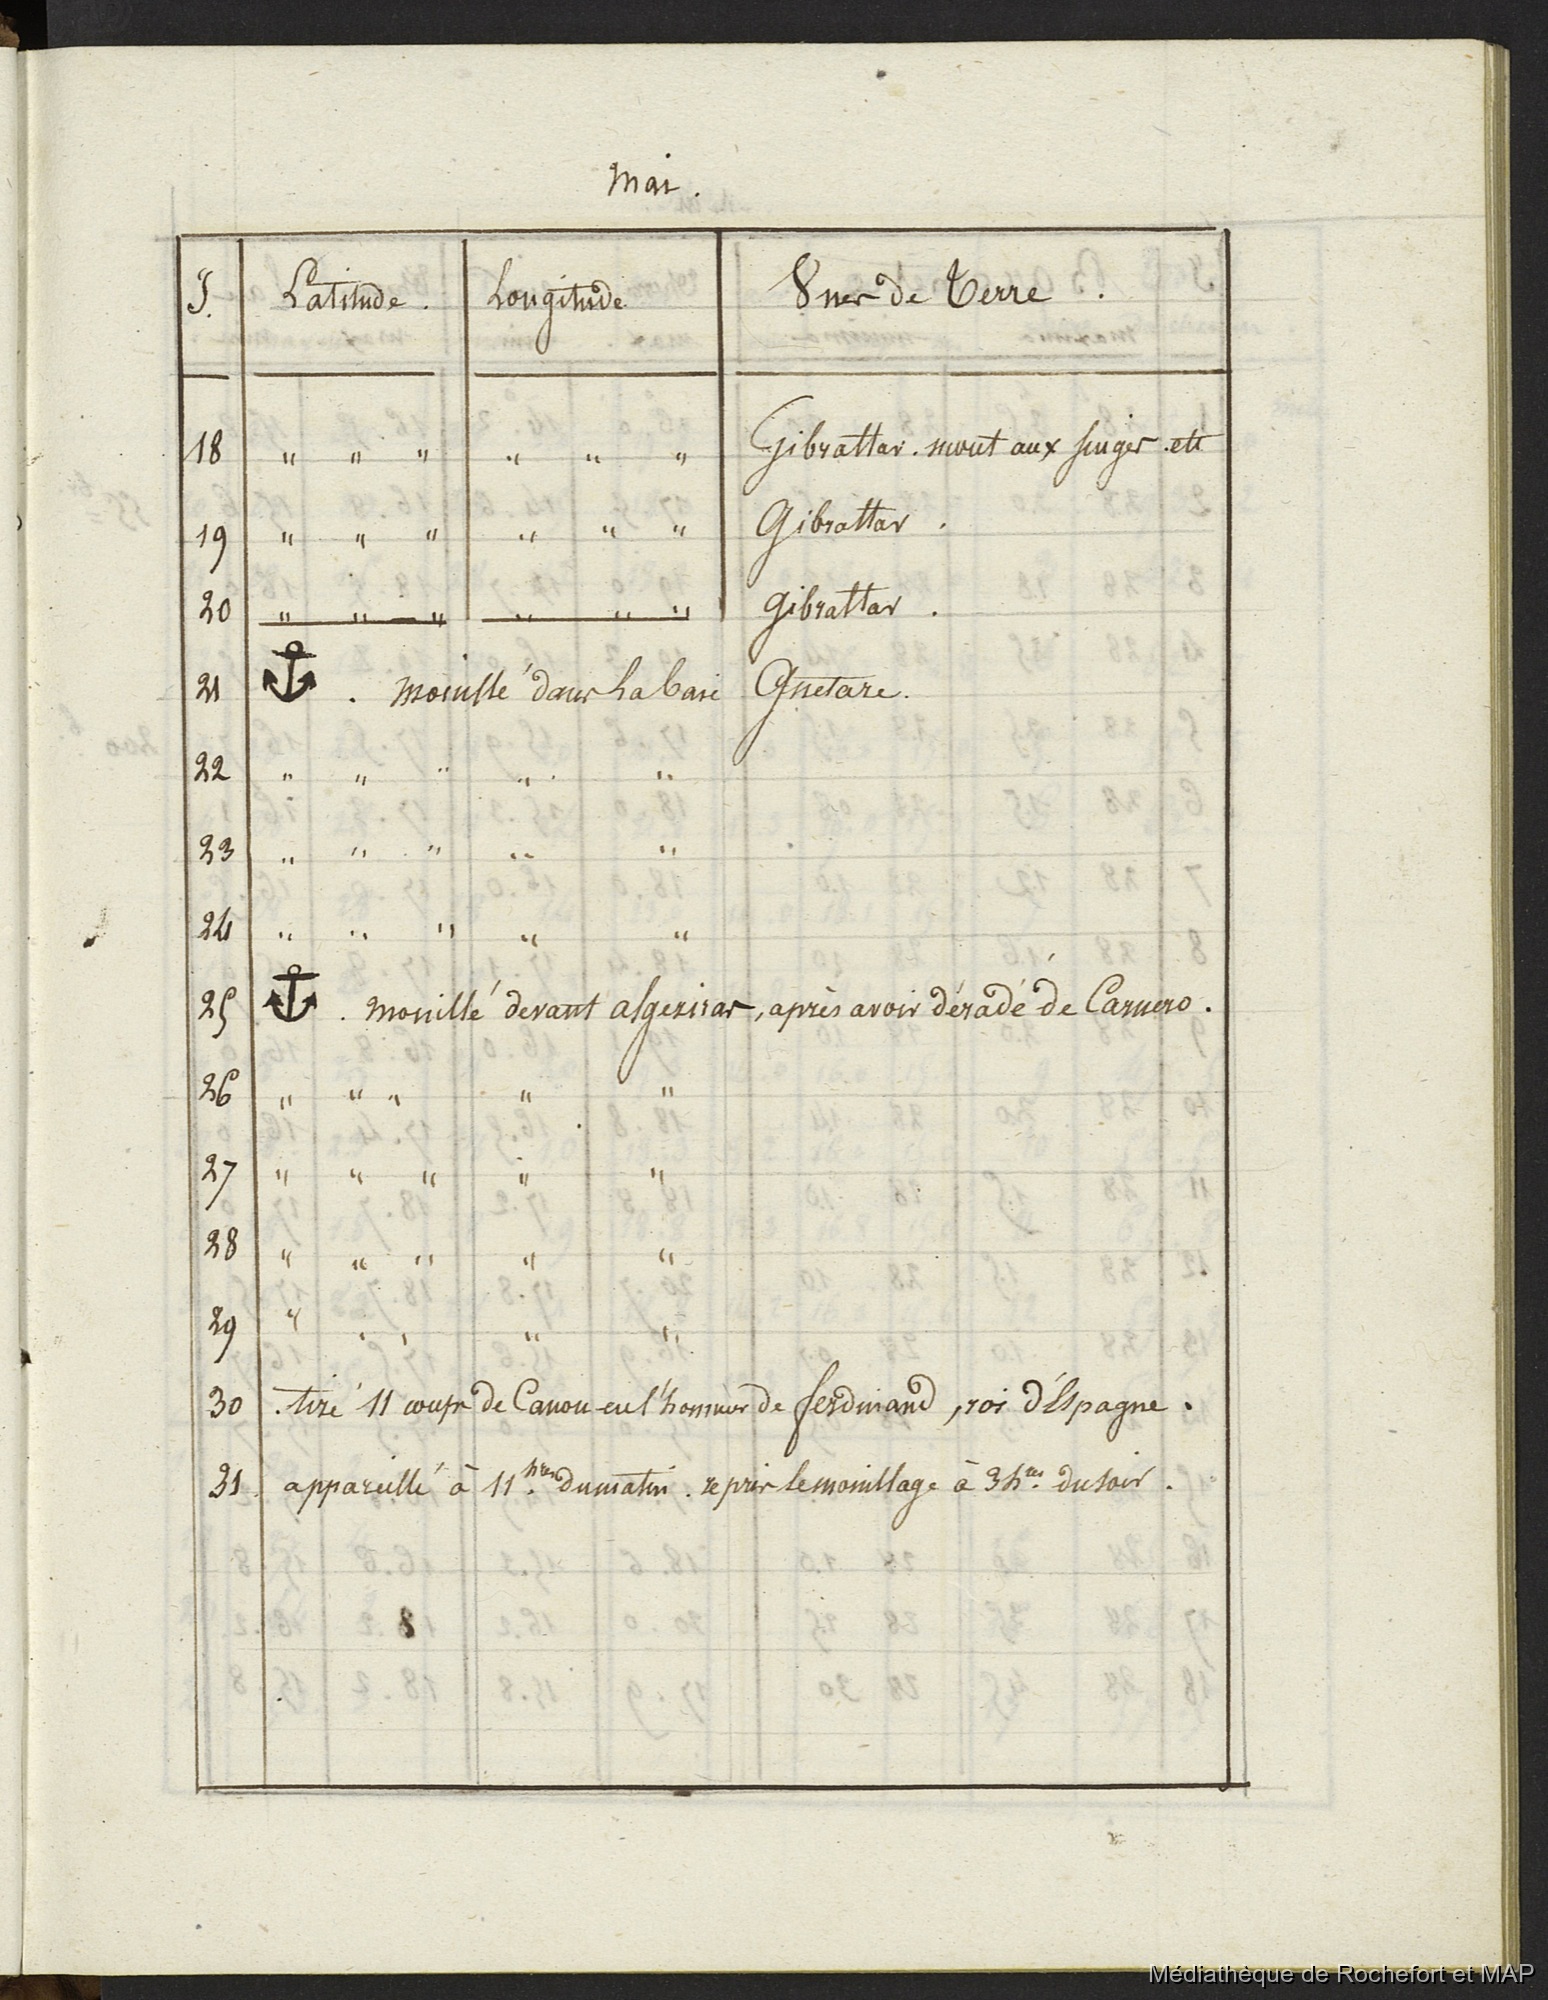 Mai .
J. Latitude . Longitude Vues de Terre .
18 " " " " " " Gibrattar . mont aux singes . ett
19 " " " " " " Gibrattar .
20 " " " " " " Gibrattar .
21 . Mouillé dans La baie Guetare .
22 " " " " "
23 " " " " "
24 " " " " "
25 . Mouillé devant algeziras , après avoir déradé de Carnero .
26 " " " " "
27 " " " " "
28 " " " " "
29 " " " " "
30 . tiré 11 coups de Canon en l'honneur de ferdinand , roi d'Espagne .
31 . appareillé à 11 hres. du matin . repris le mouillage à 3 hres. du soir .
Médiathèque de Rochefort et MAP